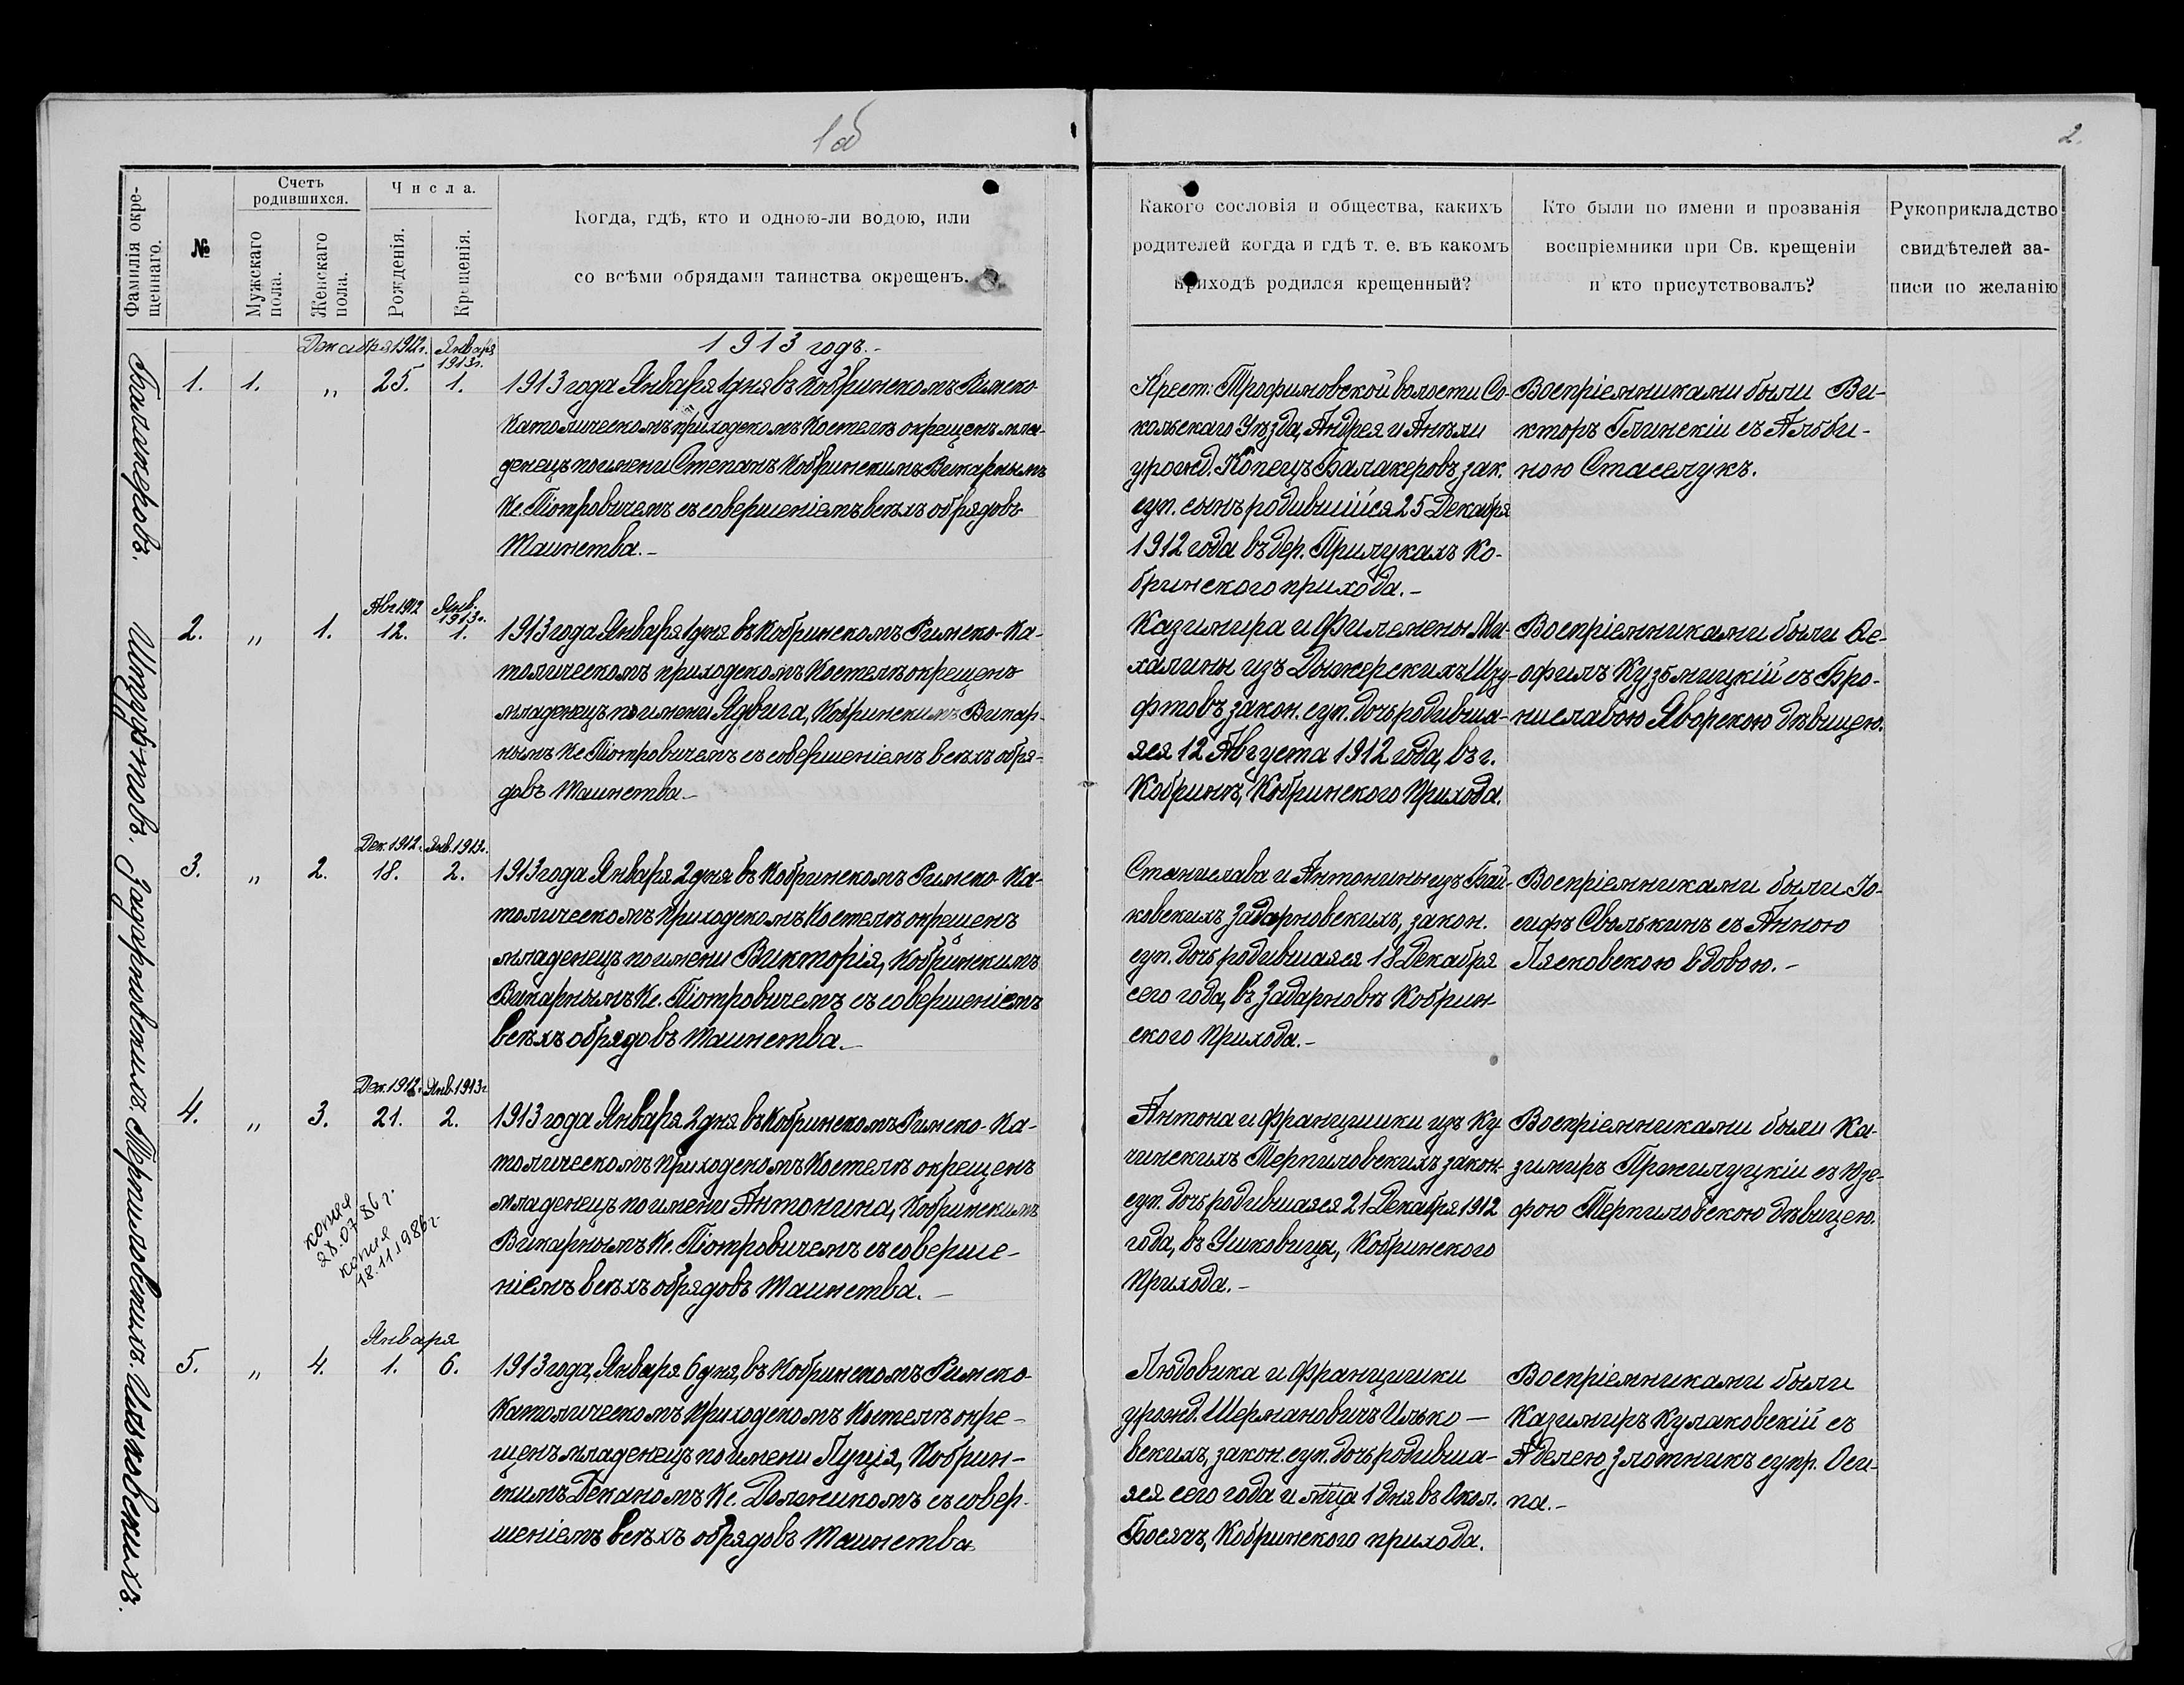 1об
2.
Фамилія окре-
щеннаго.
№
Счетъ
родившихся.
Мужскаго
пола.
Женскаго
пола.
Числа.
Рожденія.
Крещенія.
Когда, гдѣ, кто и одною-ли водою, или
со всѣми обрядами таинства окрещенъ.
Какого сословія и общества, какихъ
родителей когда и гдѣ т. е. въ какомъ
приходѣ родился крещенный?
Кто были по имени и прозванія
воспріемники при Св. крещеніи
и кто присутствовалъ?
Рукоприкладство
свидѣтелей за-
писи по желанію
1913 годъ.-
Балакеровъ.
Декабря 1912г. Января
1913г.
1. 1. " 25. 1.
1913 года Января 1 дня въ Кобринскомъ Римско
Католическомъ приходскомъ Костелѣ окрещенъ мла-
денецъ по имени Степанъ Кобринскимъ Викарнымъ
Кс. Піотровичемъ съ совершеніемъ всѣхъ обрядовъ
Таинства.-
Крест. Трофимовской волости Со-
кольскаго Уѣзда, Андрея и Анѣли
урожд. Копецъ Балакеровъ, зак.
суп. сынъ родившійся 25 Декабря
1912 года въ дер. Прилукахъ Ко-
бринскаго прихода.-
Воспріемниками были Ви-
кторъ Глинскіи съ Альби-
ною Стаселукъ.
Шпуфтовъ.
Авг 1912 Янв.
1913г.
2. " 1. 12. 1.
1913 года Января 1 дня въ Кобринскомъ Римско-Ка-
толическомъ приходскомъ Костелѣ окрещенъ
младенецъ по имени Ядвига, Кобринскимъ Викар-
нымъ Кс. Піотровичемъ съ совершеніемъ всѣхъ обря-
довъ Таинства-
Казимира и Филемены Ми-
халины изъ Дыжерскихъ
фтовъ закон. суп. дочь родивша-
яся 12 Августа 1912 года, въ г.
Кобринѣ, Кобринского Прихода.
Воспріемниками были Ѳе-
офилъ Кузьмицкій съ Бро-
ниславою Яворскою дѣвицею.
Задарновскихъ.
Дек. 1912г. Янв. 1913г.
3. " 2. 18. 2.
1913 года Января 2 дня въ Кобринскомъ Римско-Ка-
толическомъ Приходскомъ Костелѣ окрещенъ
младенецъ по имени Викторія, Кобринскимъ
Викарнымъ Кс. Піотровичемъ съ совершеніемъ
всѣхъ обрядовъ Таинства.-
Станислава и Антонины изъ Бай-
ковскихъ Задарновскихъ, закон.
суп. дочь родившаяся 18 Декабря
сего года, въ Задарновѣ Кобрин
ского Прихода.-
Воспріемниками были Іо-
сифъ Сволькинъ съ Анною
Лясковскою вдовою.-
Терпиловскихъ.
Дек. 1912г. Янв. 1913г
4. " 3. 21. 2.
копия
28.07.86 г.
копия
18.11.1986 г.
1913 года Января 2 дня въ Кобринскомъ Римско-Ка-
толическомъ Приходскомъ Костелѣ окрещенъ
младенецъ по имени Антонина, Кобринскимъ
Викарнымъ Кс. Піотровичемъ съ соверше-
ніемъ всѣхъ обрядовъ Таинства.-
Антона и Францишки изъ Ку
чинскихъ Терпиловскихъ закон.
суп. дочь родившаяся 21 Декабря 1912
года, въ Ушковица, Кобринского
Прихода.-
Воспріемниками были Ка-
зимиръ Пранилуцкіи съ Юзе-
фою Терпиловскою дѣвицею.
Илько́вскихъ.
Января
5. " 4. 1. 6.
1913 года, Января 6 дня, въ Кобринскомъ Римско-
Католическомъ Приходскомъ Костелѣ окре-
щенъ младенецъ по имени Луція, Кобрин-
скимъ Деканомъ Кс. Должикомъ съ совер-
шеніемъ всѣхъ обрядовъ Таинства
Людовика и Францишки
урожд. Шермановичъ Илько-
вскихъ, закон. суп. дочь родивша-
яся сего года и мца 1 дня въ Окол.
Босячъ, Кобринского прихода.
Воспріемниками были
Казимиръ Кулаковскій съ
Аделею Злотникъ супр. Оси-
па.-